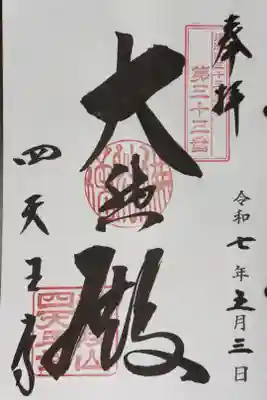 奉拝
第三十三番
令和七年五月三日
大悲殿
四天王寺